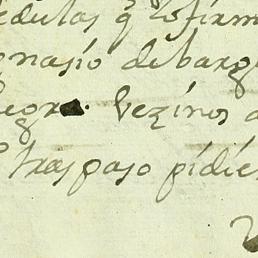 cedulas q̃ Confirm
gnasio de barg
legra. Vezinos d
traspaso pidie